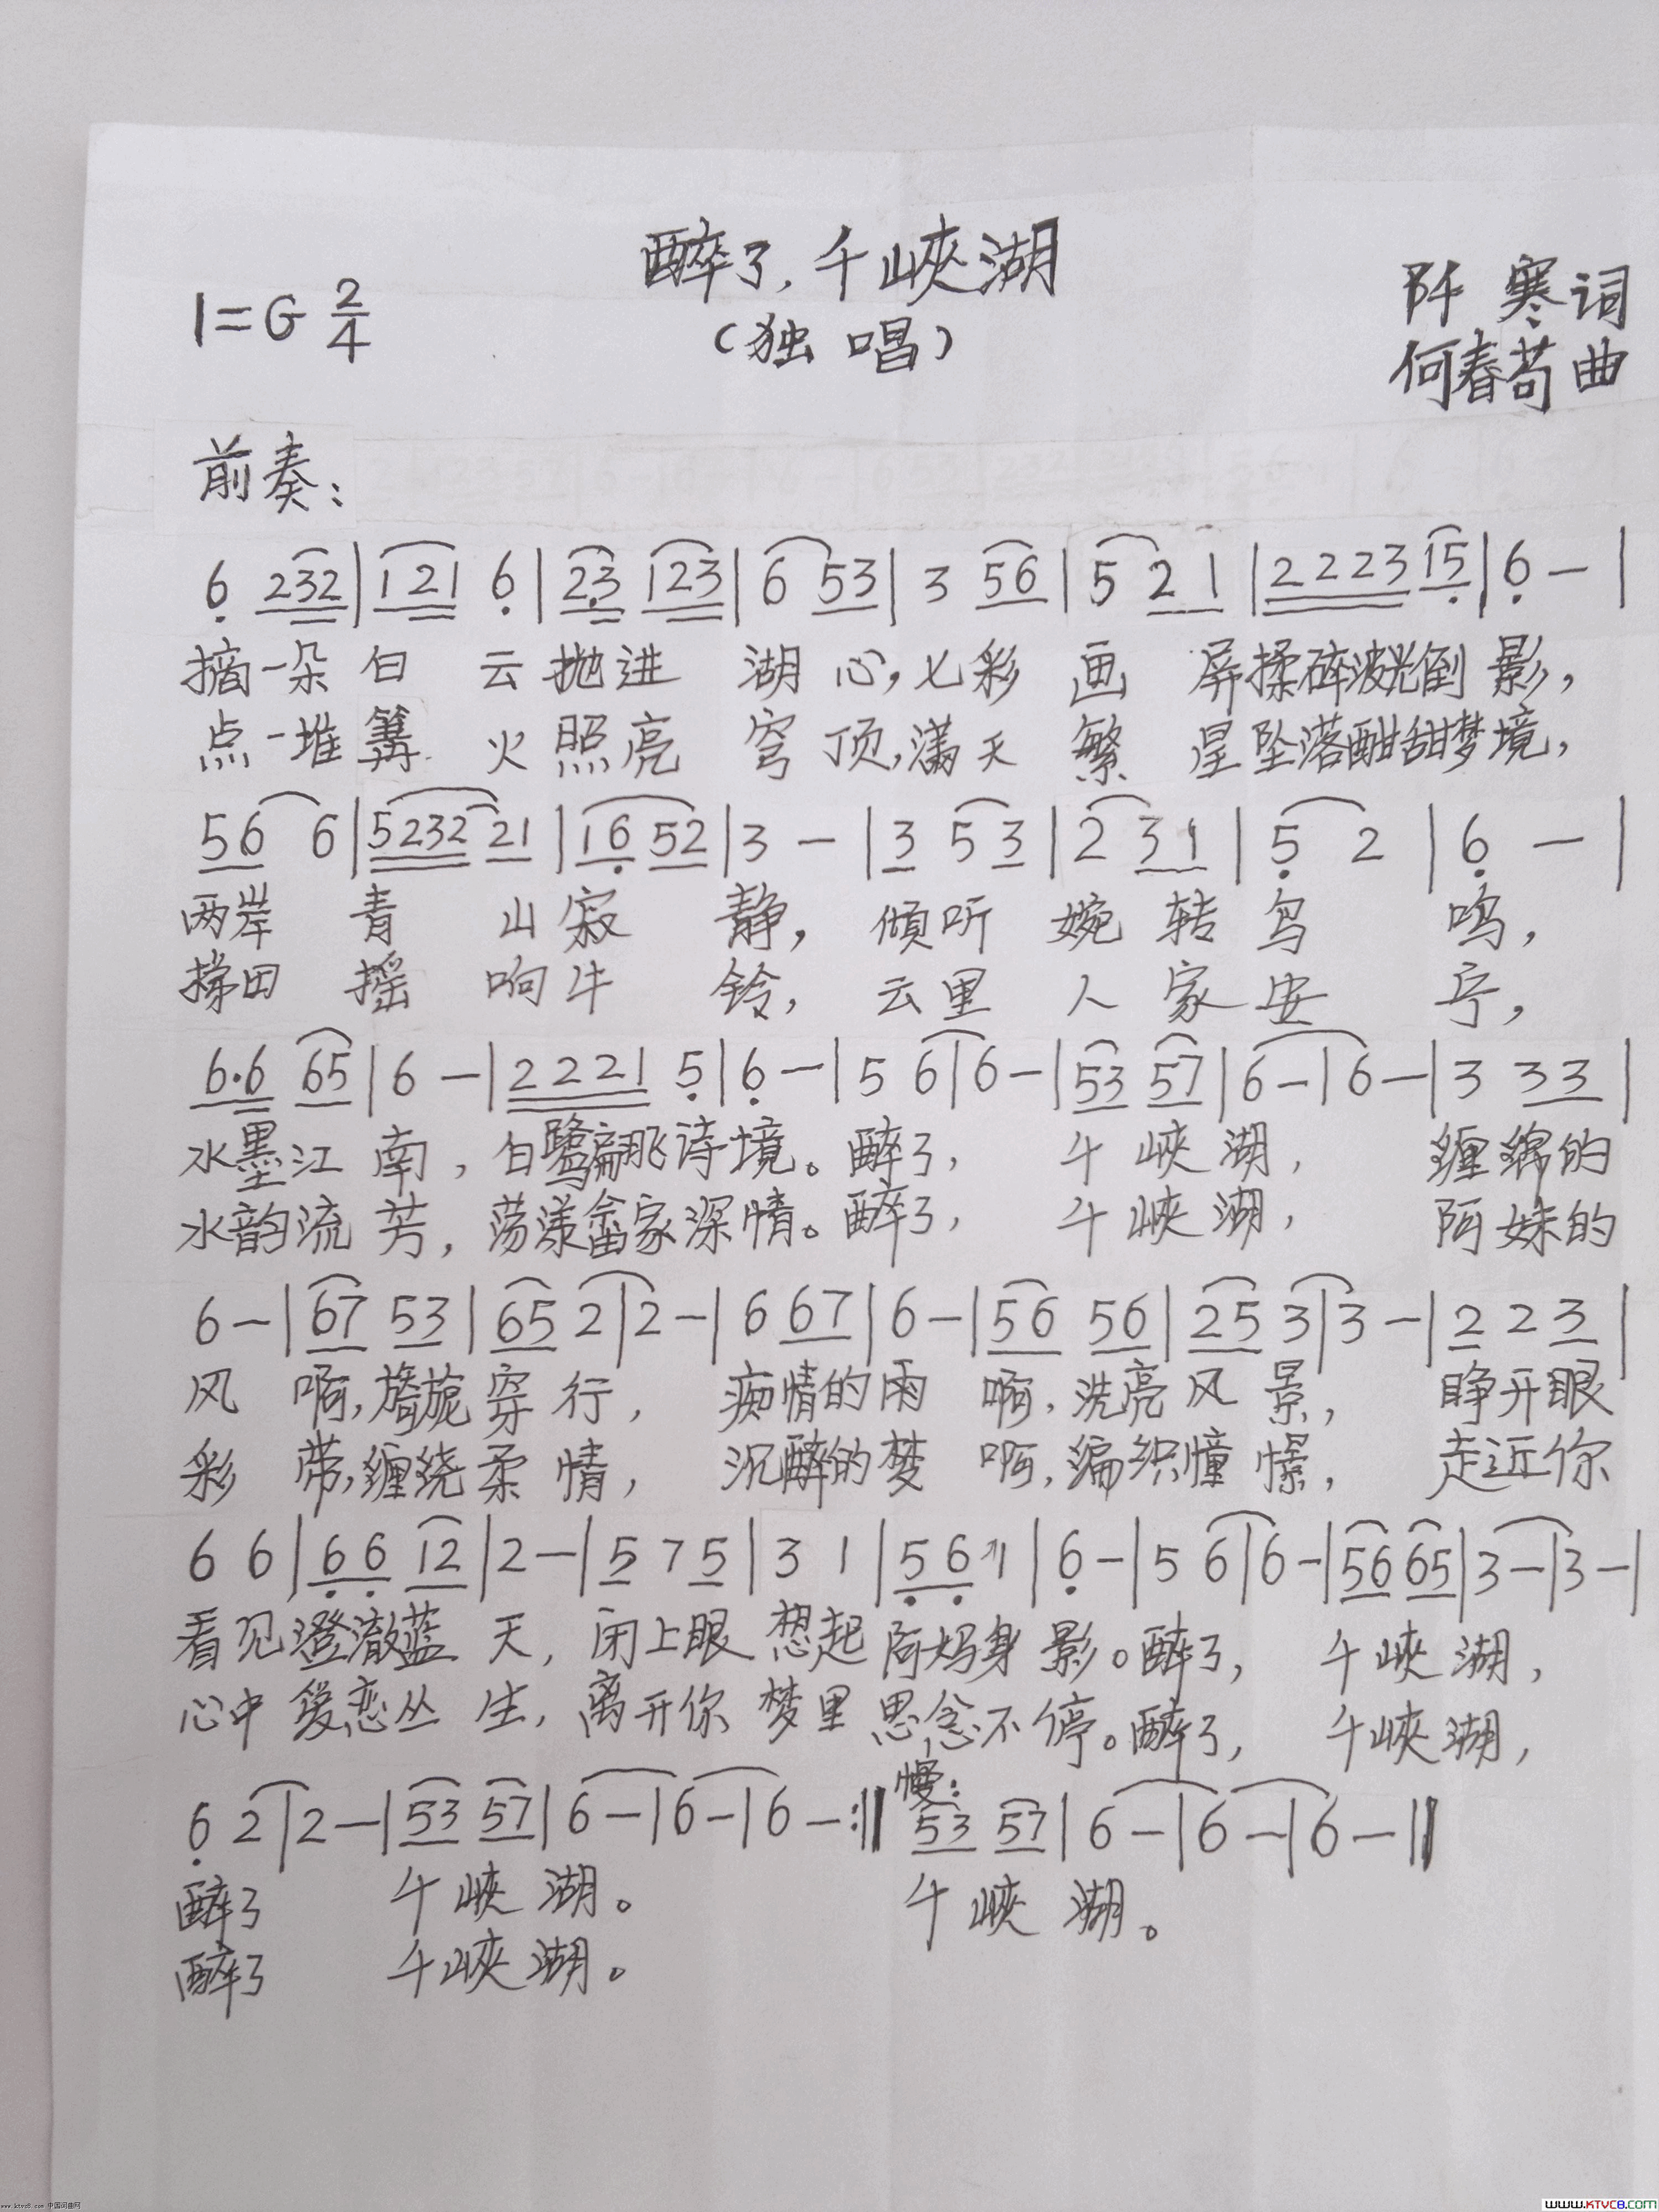 醉了,千峡湖
1=G 2/4
(独唱)
阡寒词
何春苟曲
前奏:
6 232|121 6|23 123|6 53|3 56|5 21|2223 15|6-|
摘一朵白云抛进湖心,七彩画屏揉碎波光倒影,
点一堆篝火照亮穹顶,满天繁星坠落酣甜梦境,
56 6|5232 21|16 52|3-|3 5 3|2 31|5 2|6-|
两岸青山寂静,倾听婉转鸟鸣,
梯田摇响牛铃,云里人家安宁,
6·6 65|6-|2221 5|6-|5 6|6-|53 57|6-|6-|3 33|
水墨江南,白鹭翩飞诗境。醉了,千峡湖,缠绵的
水韵流芳,荡漾畲家深情。醉了,千峡湖,阿妹的
6-|67 53|65 2|2-|6 67|6-|56 56|25 3|3-|2 2 3|
风啊,旖旎穿行,痴情的雨啊,洗亮风景,睁开眼
彩带,缠绕柔情,沉醉的梦啊,编织憧憬,走近你
6 6|66 12|2-|5 7 5|3 1|56 1|6-|5 6|6-|56 65|3-|3-|
看见澄澈蓝天,闭上眼想起阿妈身影。醉了,千峡湖,
心中爱恋丛生,离开你梦里思念不停。醉了,千峡湖,
慢:
6 2|2-|53 57|6-|6-|6-:‖ 53 57|6-|6-|6-‖
醉了千峡湖。千峡湖。
醉了千峡湖。
www.ktvc8.com 中国词曲网
WWW.KTVC8.COM